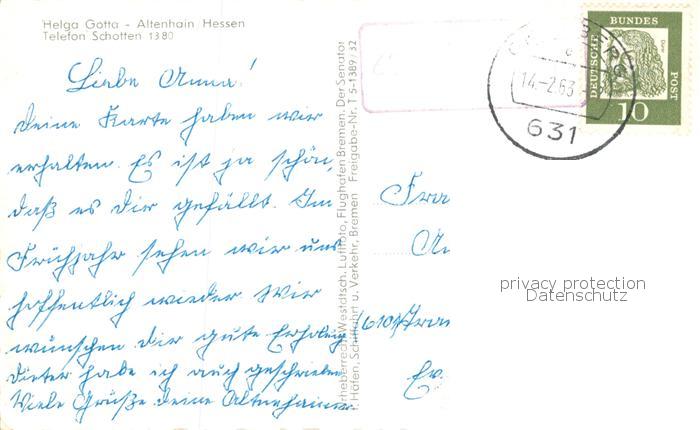 Helga Gotta - Altenhain/Hessen
Telefon Schotten 1380
Liebe Anna!
deine Karte haben wir
erhalten. Es ist ja schön,
daß es dir gefällt. Im
Frühjahr sehen wir uns
hoffentlich wieder. Wir
wünschen dir gute Erholung
Dieter habe ich auch geschrieben
Viele Grüße deine Altenhainer
Urheberrecht: Westdtsch. Luftfoto, Flughafen Bremen. Der Senator
f. Häfen, Schiffahrt u. Verkehr, Bremen Freigabe-Nr. T 5-1389/32
14.-2.63
631
BUNDES
DEUTSCHE
POST
10
Frau
(6101)
privacy protection
Datenschutz